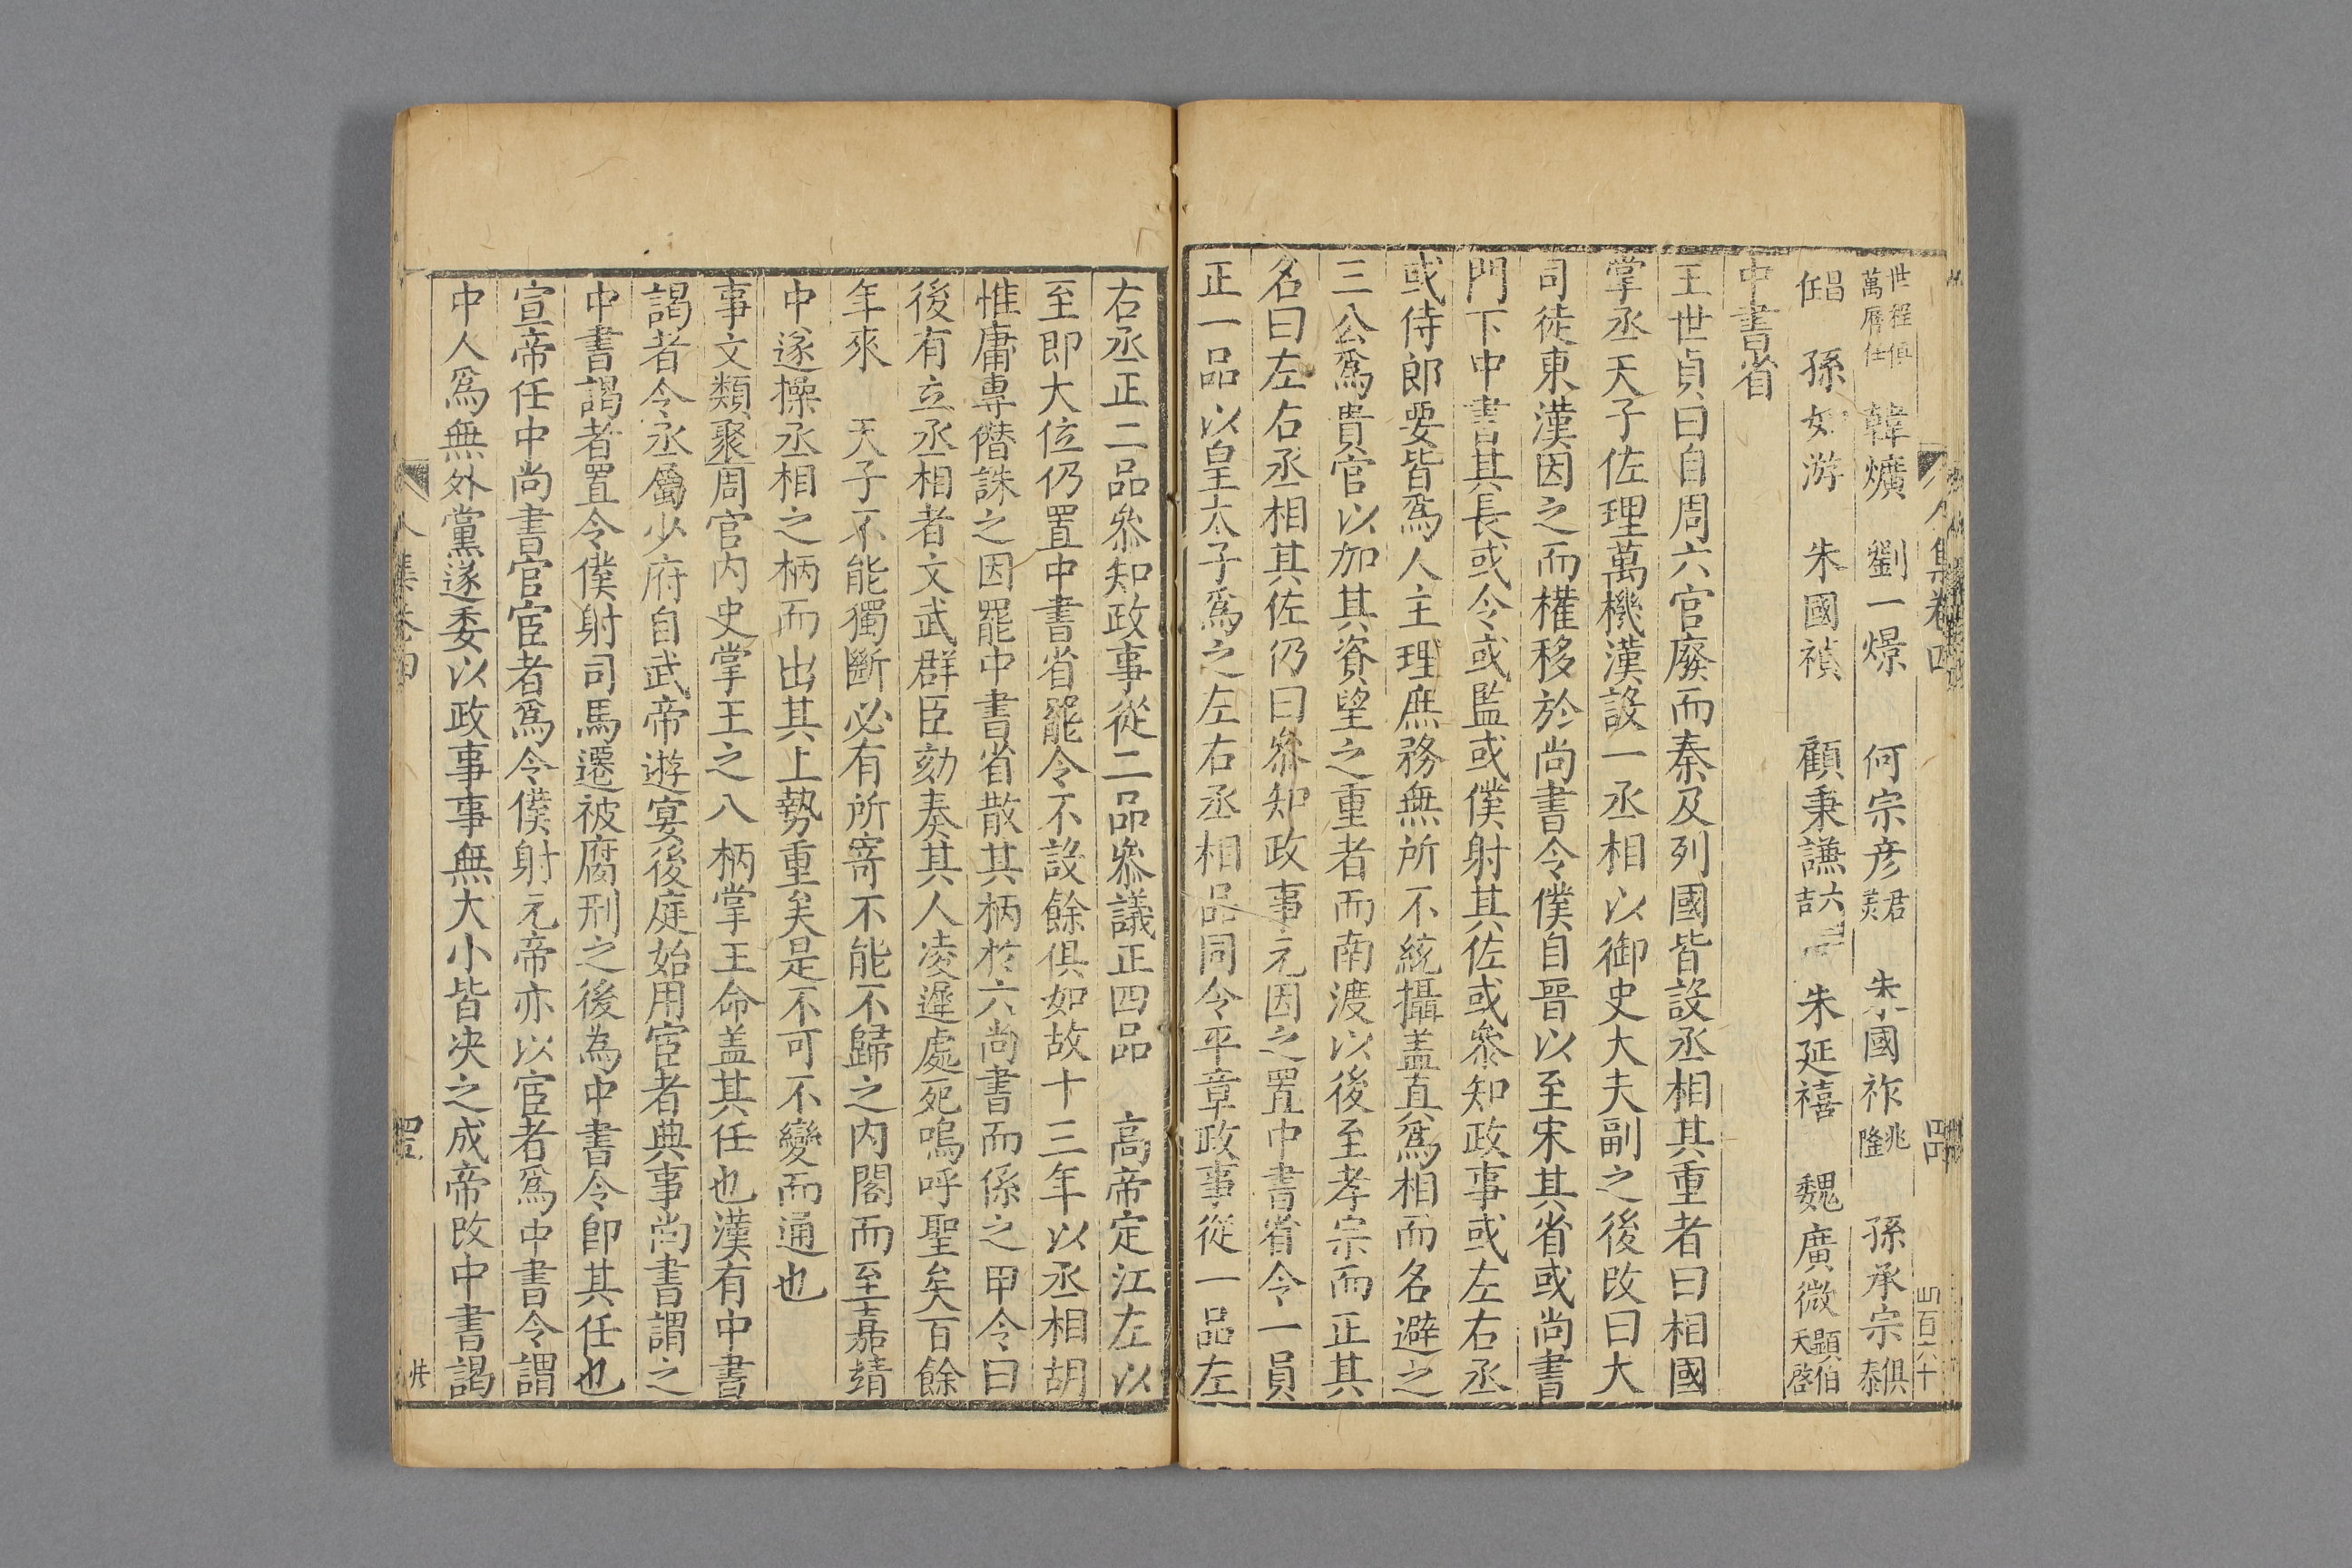 世程 萬曆任 韓爌 劉一燝 何宗彥 君美 朱國祚 兆隆 孫承宗 俱泰
昌任 孫如游 朱國禎 顧秉謙 六吉 朱延禧 魏廣微 顯伯 天啓
中書省
王世貞曰自周六官廢而秦及列國皆設丞相其重者曰相國
掌丞天子佐理萬機漢設一丞相以御史大夫副之後改曰大
司徒東漢因之而權移於尚書令僕自晉以至宋其省或尚書
門下中書其長或令或監或僕射其佐或叅知政事或左右丞
或侍郎要皆爲人主理庶務無所不統攝盖直爲相而名避之
三公爲貴官以加其資望之重者而南渡以後至孝宗而正其
名曰左右丞相其佐仍曰叅知政事元因之置中書省令一員
正一品以皇太子爲之左右丞相品同令平章政事從一品左
右丞正二品叅知政事從二品叅議正四品 高帝定江左以
至即大位仍置中書省罷令不設餘俱如故十三年以丞相胡
惟庸專僣誅之因罷中書省散其柄於六尚書而係之甲令曰
後有立丞相者文武群臣劾奏其人凌遲處死嗚呼聖矣百餘
年來 天子不能獨斷必有所寄不能不歸之內閣而至嘉靖
中遂操丞相之柄而出其上勢重矣是不可不變而通也
事文類聚周官內史掌王之八柄掌王命盖其任也漢有中書
謁者令丞屬少府自武帝遊宴後庭始用宦者典事尚書謂之
中書謁者置令僕射司馬遷被腐刑之後為中書令卽其任也
宣帝任中尚書官宦者爲令僕射元帝亦以宦者爲中書令謂
中人爲無外黨遂委以政事事無大小皆决之成帝改中書謁
人集卷四